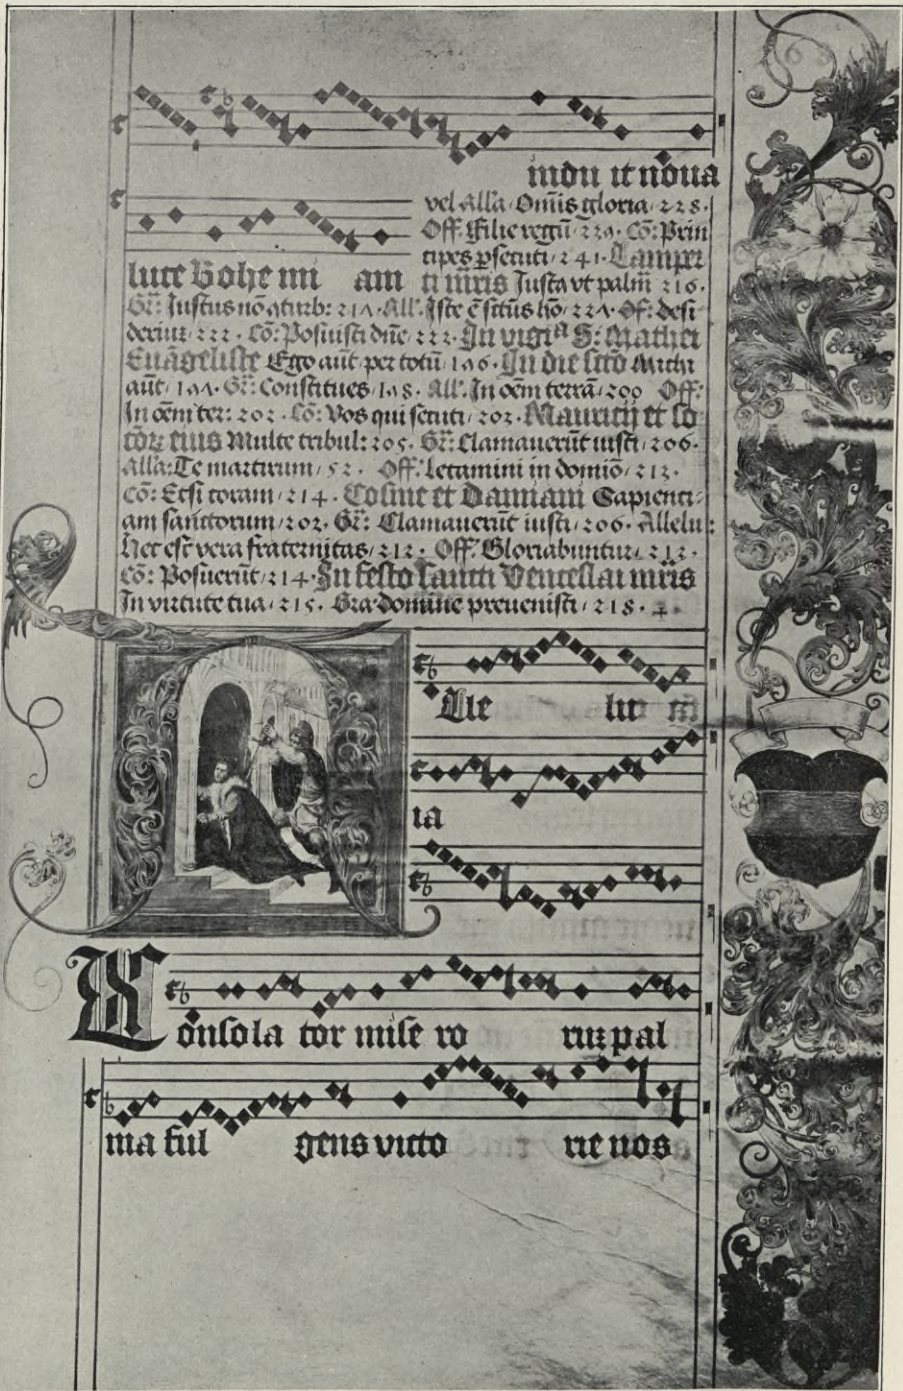 indu it noua
vel All'a Om̄is gloria 228.
Off. Filie regū 229. Cō: Prin
cipes ꝑsecuti 241. Lamper
luce Bohe mi am ti m̄ris Justa vt palm̄ 216.
Gr̄: Justus nō 217. All'. Iste ē 227. Of: desi
deriuz 222. Cō: Posuisti dn̄e 222. In vigiᵃ S: Mathei
Euāgeliste Ego aūt per totū 196. In die scō Michi
aūt 197. Gr̄: Constitues 198. All'. In oēm terrā 200 Off:
In oēm ter: 202. Cō: Vos qui secuti 202. Mauricij et so
cioꝝ eius Multe tribul: 205. Gr̄: Clamauerūt iusti 206.
All'a: Te martirum 52. Off. Letamini in domiō 212.
Cō: Etsi coram 214. Cosme et Damiani Sapienci-
am sanctorum 202. Gr̄: Clamauerūt iusti 206. Allelu:
Hec est vera fraternitas 212. Off. Gloriabuntur 212.
Cō: Posuerūt 214. In festo sancti Venceslai m̄ris
In virtute tua 215. Gra domine preuenisti 218.
Alle lu
ia
Consola tor mise ro ruꝫ pal
ma ful gens victo rie nos